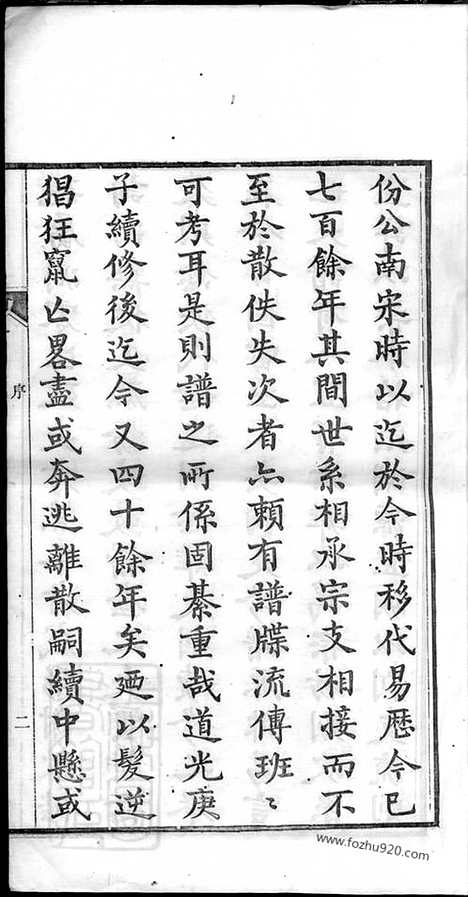 份公南宋時以迄於今時移代易歴今已
七百餘年其間世系相承宗支相接而不
至於散佚失次者亦賴有譜牒流傳班〻
可考耳是則譜之所係固綦重哉道光庚
子續修後迄今又四十餘年矣廼以髮逆
猖狂竄亡畧盡或奔逃離散嗣續中懸或
序
二
www.fozhu920.com